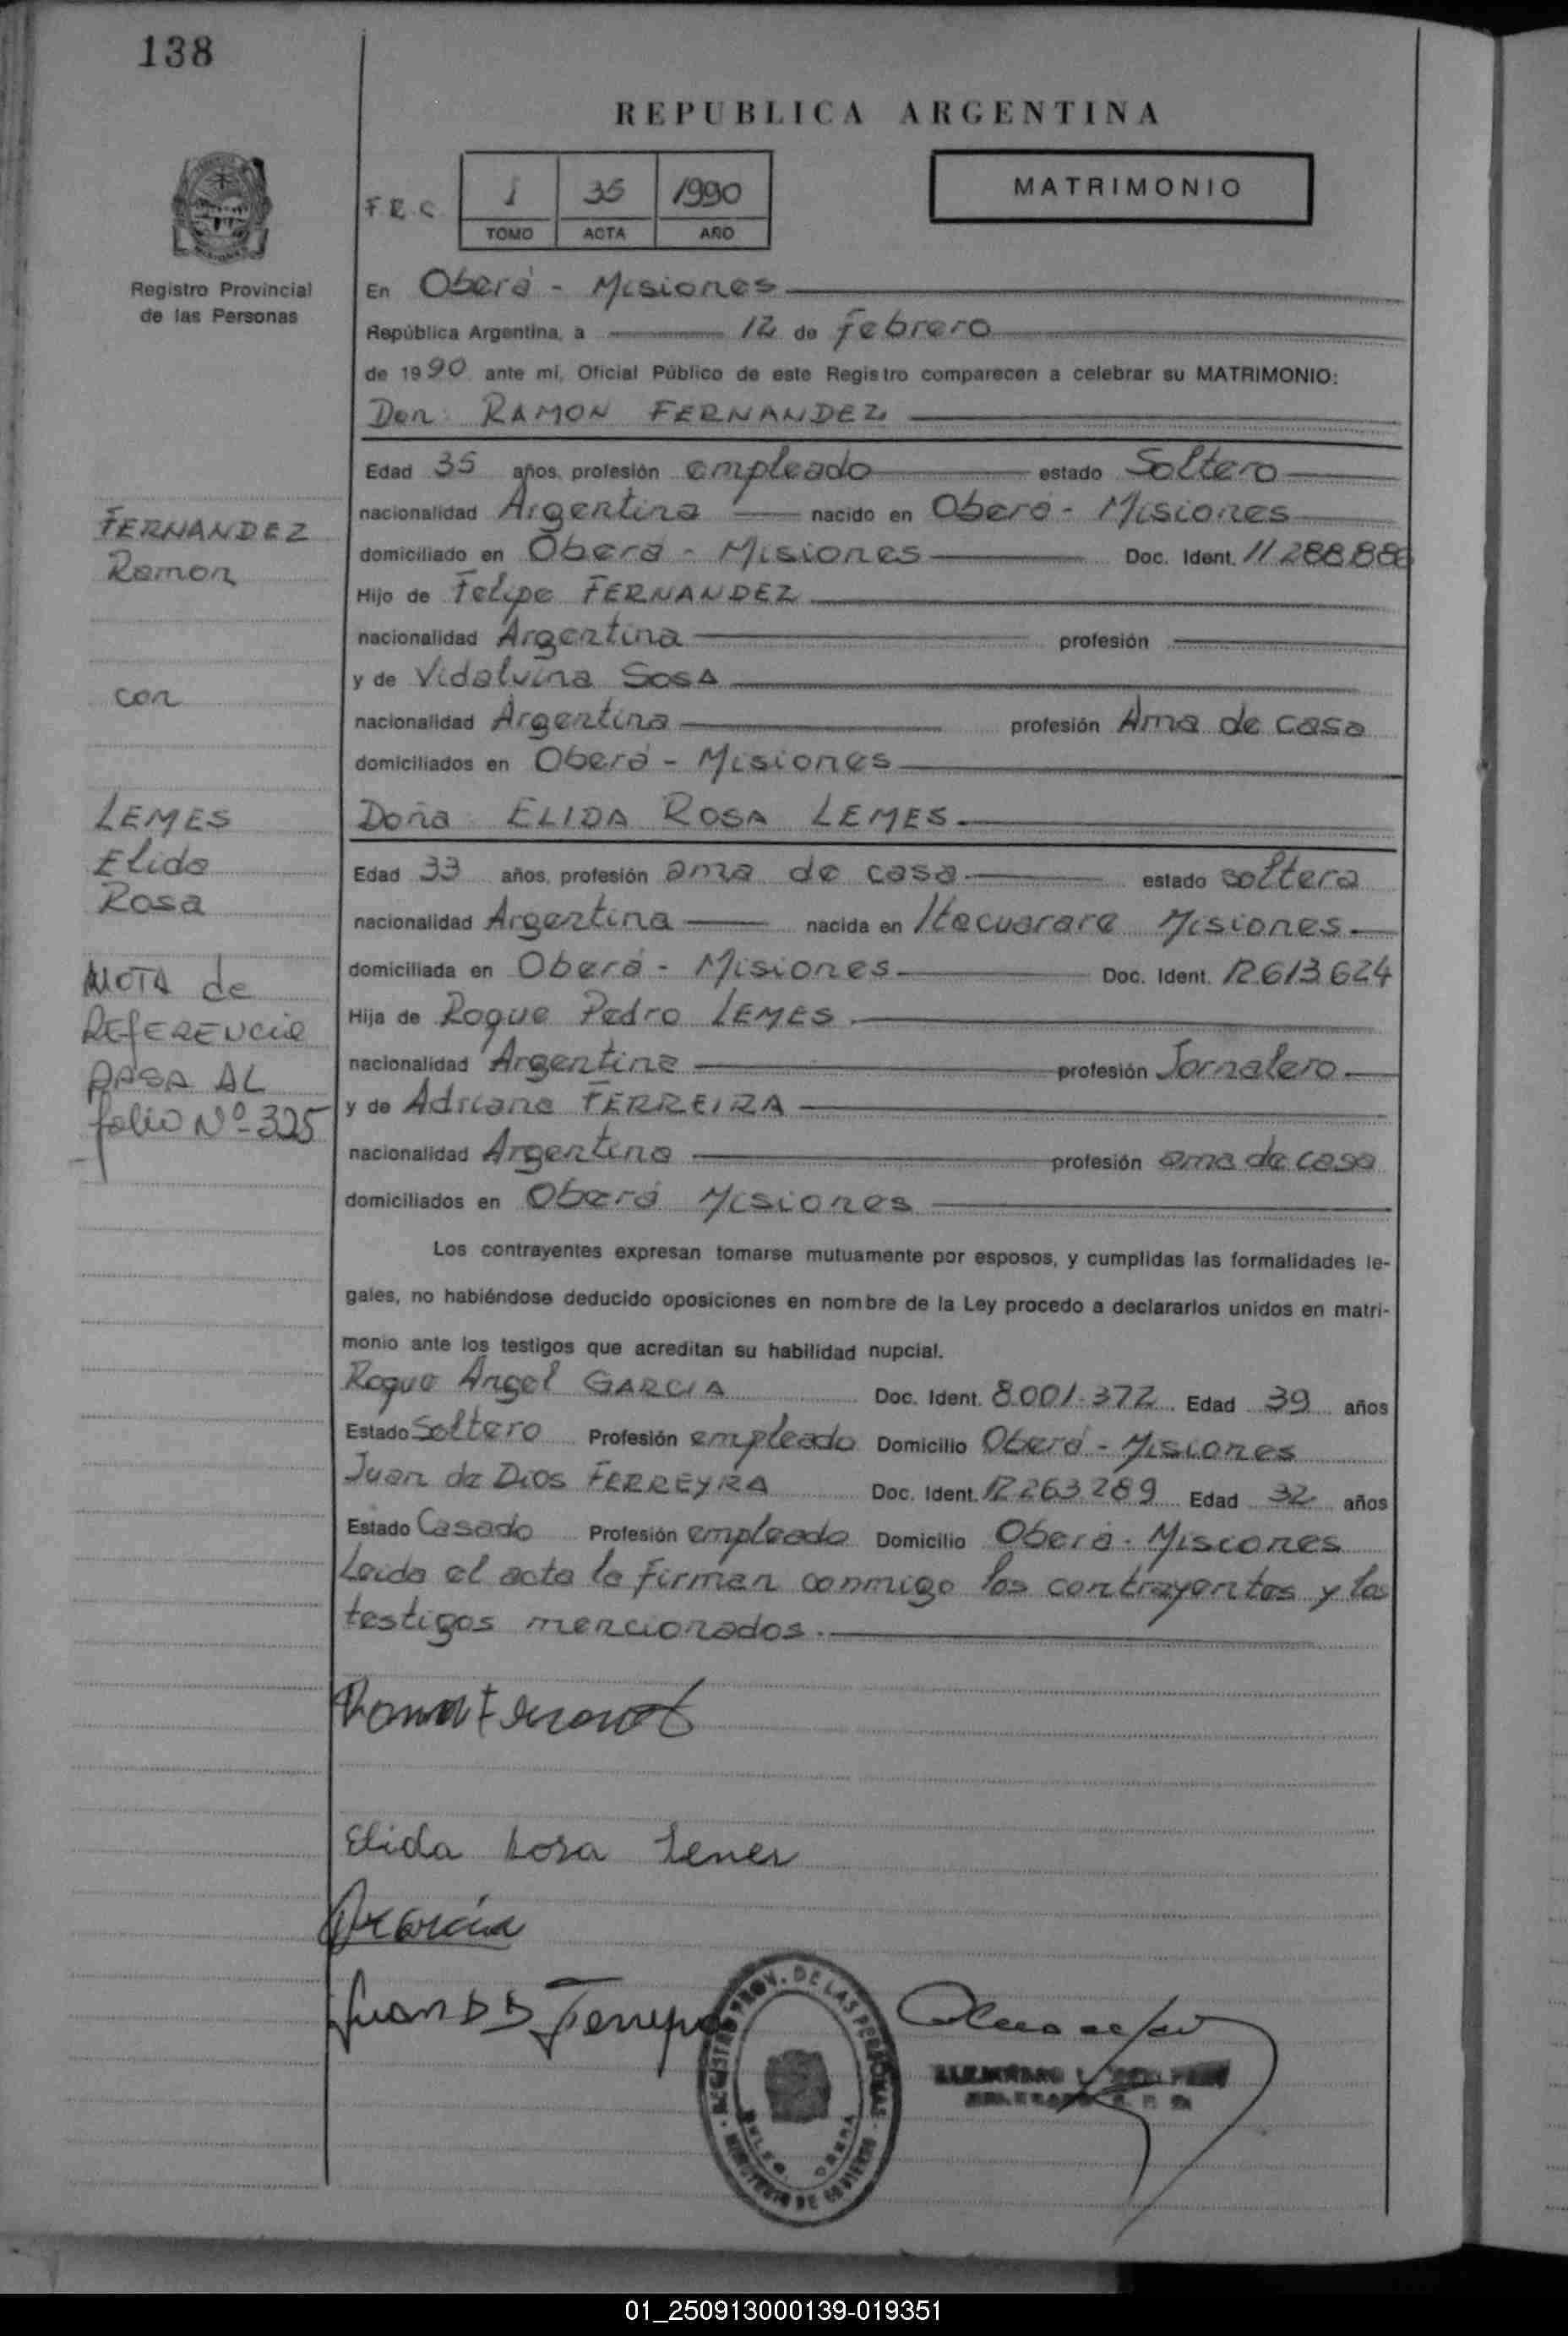 138
REPUBLICA ARGENTINA
F.R.C.
1 35 1990
TOMO ACTA AÑO
MATRIMONIO
Registro Provincial
de las Personas
En Oberá - Misiones
República Argentina, a 12 de Febrero
de 1990 ante mi, Oficial Público de este Registro comparecen a celebrar su MATRIMONIO:
Don RAMON FERNANDEZ
Edad 35 años, profesión empleado estado Soltero
nacionalidad Argentina nacido en Oberá - Misiones
domiciliado en Oberá - Misiones Doc. Ident. 11.288.886
Hijo de Felipe FERNANDEZ
nacionalidad Argentina profesión
y de Vidalvina SOSA
nacionalidad Argentina profesión Ama de casa
domiciliados en Oberá - Misiones
Doña ELIDA ROSA LEMES.
Edad 33 años, profesión ama de casa. estado soltera
nacionalidad Argentina nacida en Itacuarare Misiones.
domiciliada en Oberá - Misiones. Doc. Ident. 12.613.624
Hija de Roque Pedro LEMES.
nacionalidad Argentina profesión Jornalero.
y de Adriana FERREIRA
nacionalidad Argentina profesión ama de casa
domiciliados en Oberá Misiones
Los contrayentes expresan tomarse mutuamente por esposos, y cumplidas las formalidades le-
gales, no habiéndose deducido oposiciones en nombre de la Ley procedo a declararlos unidos en matri-
monio ante los testigos que acreditan su habilidad nupcial.
Roque Angel GARCIA Doc. Ident. 8.001.372 Edad 39 años
Estado Soltero Profesión empleado Domicilio Oberá - Misiones
Juan de Dios FERREYRA Doc. Ident. 12.263.289 Edad 32 años
Estado Casado Profesión empleado Domicilio Oberá - Misiones
Leida el acta la firman conmigo los contrayentes y los
testigos mencionados.
FERNANDEZ
Ramon
con
LEMES
Elida
Rosa
NOTA de
REFERENCIA
PASA AL
folio Nº 325
Elida Rosa Lemes
Garcia
Juan D D Ferreyra
REGISTRO PROV. DE LAS PERSONAS
MINISTERIO DE GOBIERNO
OBERA
01_250913000139-019351